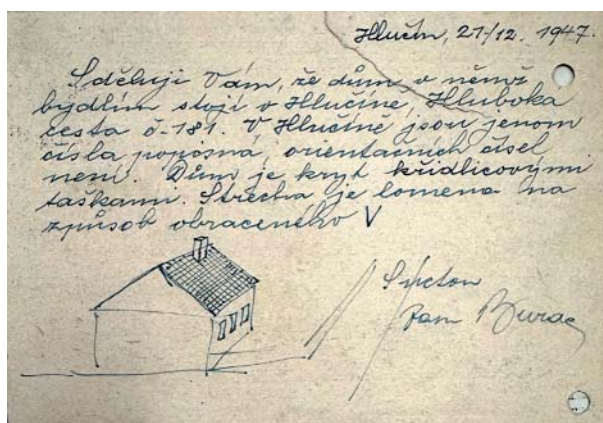 Hlučín, 27/12. 1947.
Sděluji Vám, že dům, v němž
bydlím stojí v Hlučíně, Hluboka
cesta č-181. V Hlučíně jsou jenom
čísla popisná, orientačních čísel
není. Dům je kryt křidlicovými
taškami. Střecha je lomena na
způsob obraceného V
Jan